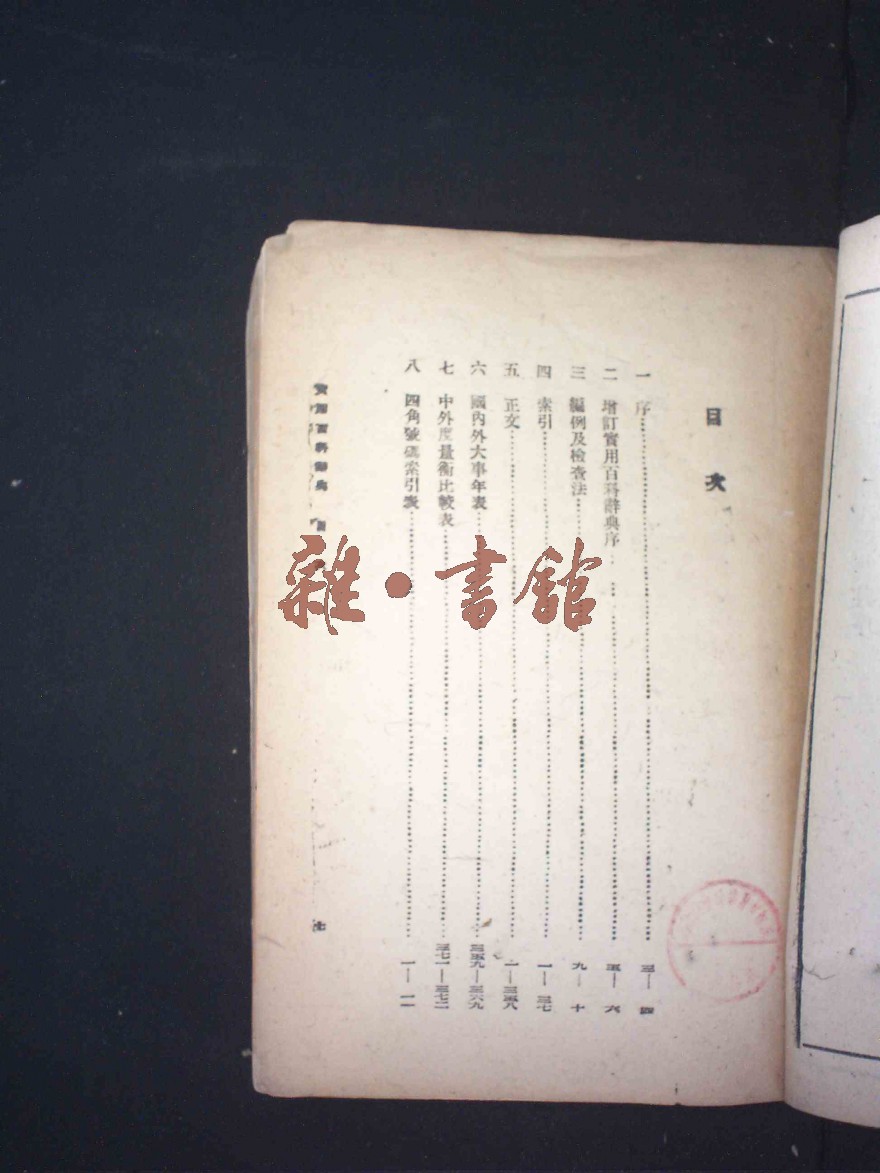 目次
一 序 三—四
二 增訂實用百科辭典序 五—六
三 編例及檢查法 九—十
四 索引 一—三七
五 正文 一—三五八
六 國內外大事年表 三五九—三六九
七 中外度量衡比較表 三七一—三七二
八 四角號碼索引表 一—一一
實用百科辭典 目
七
雜·書館